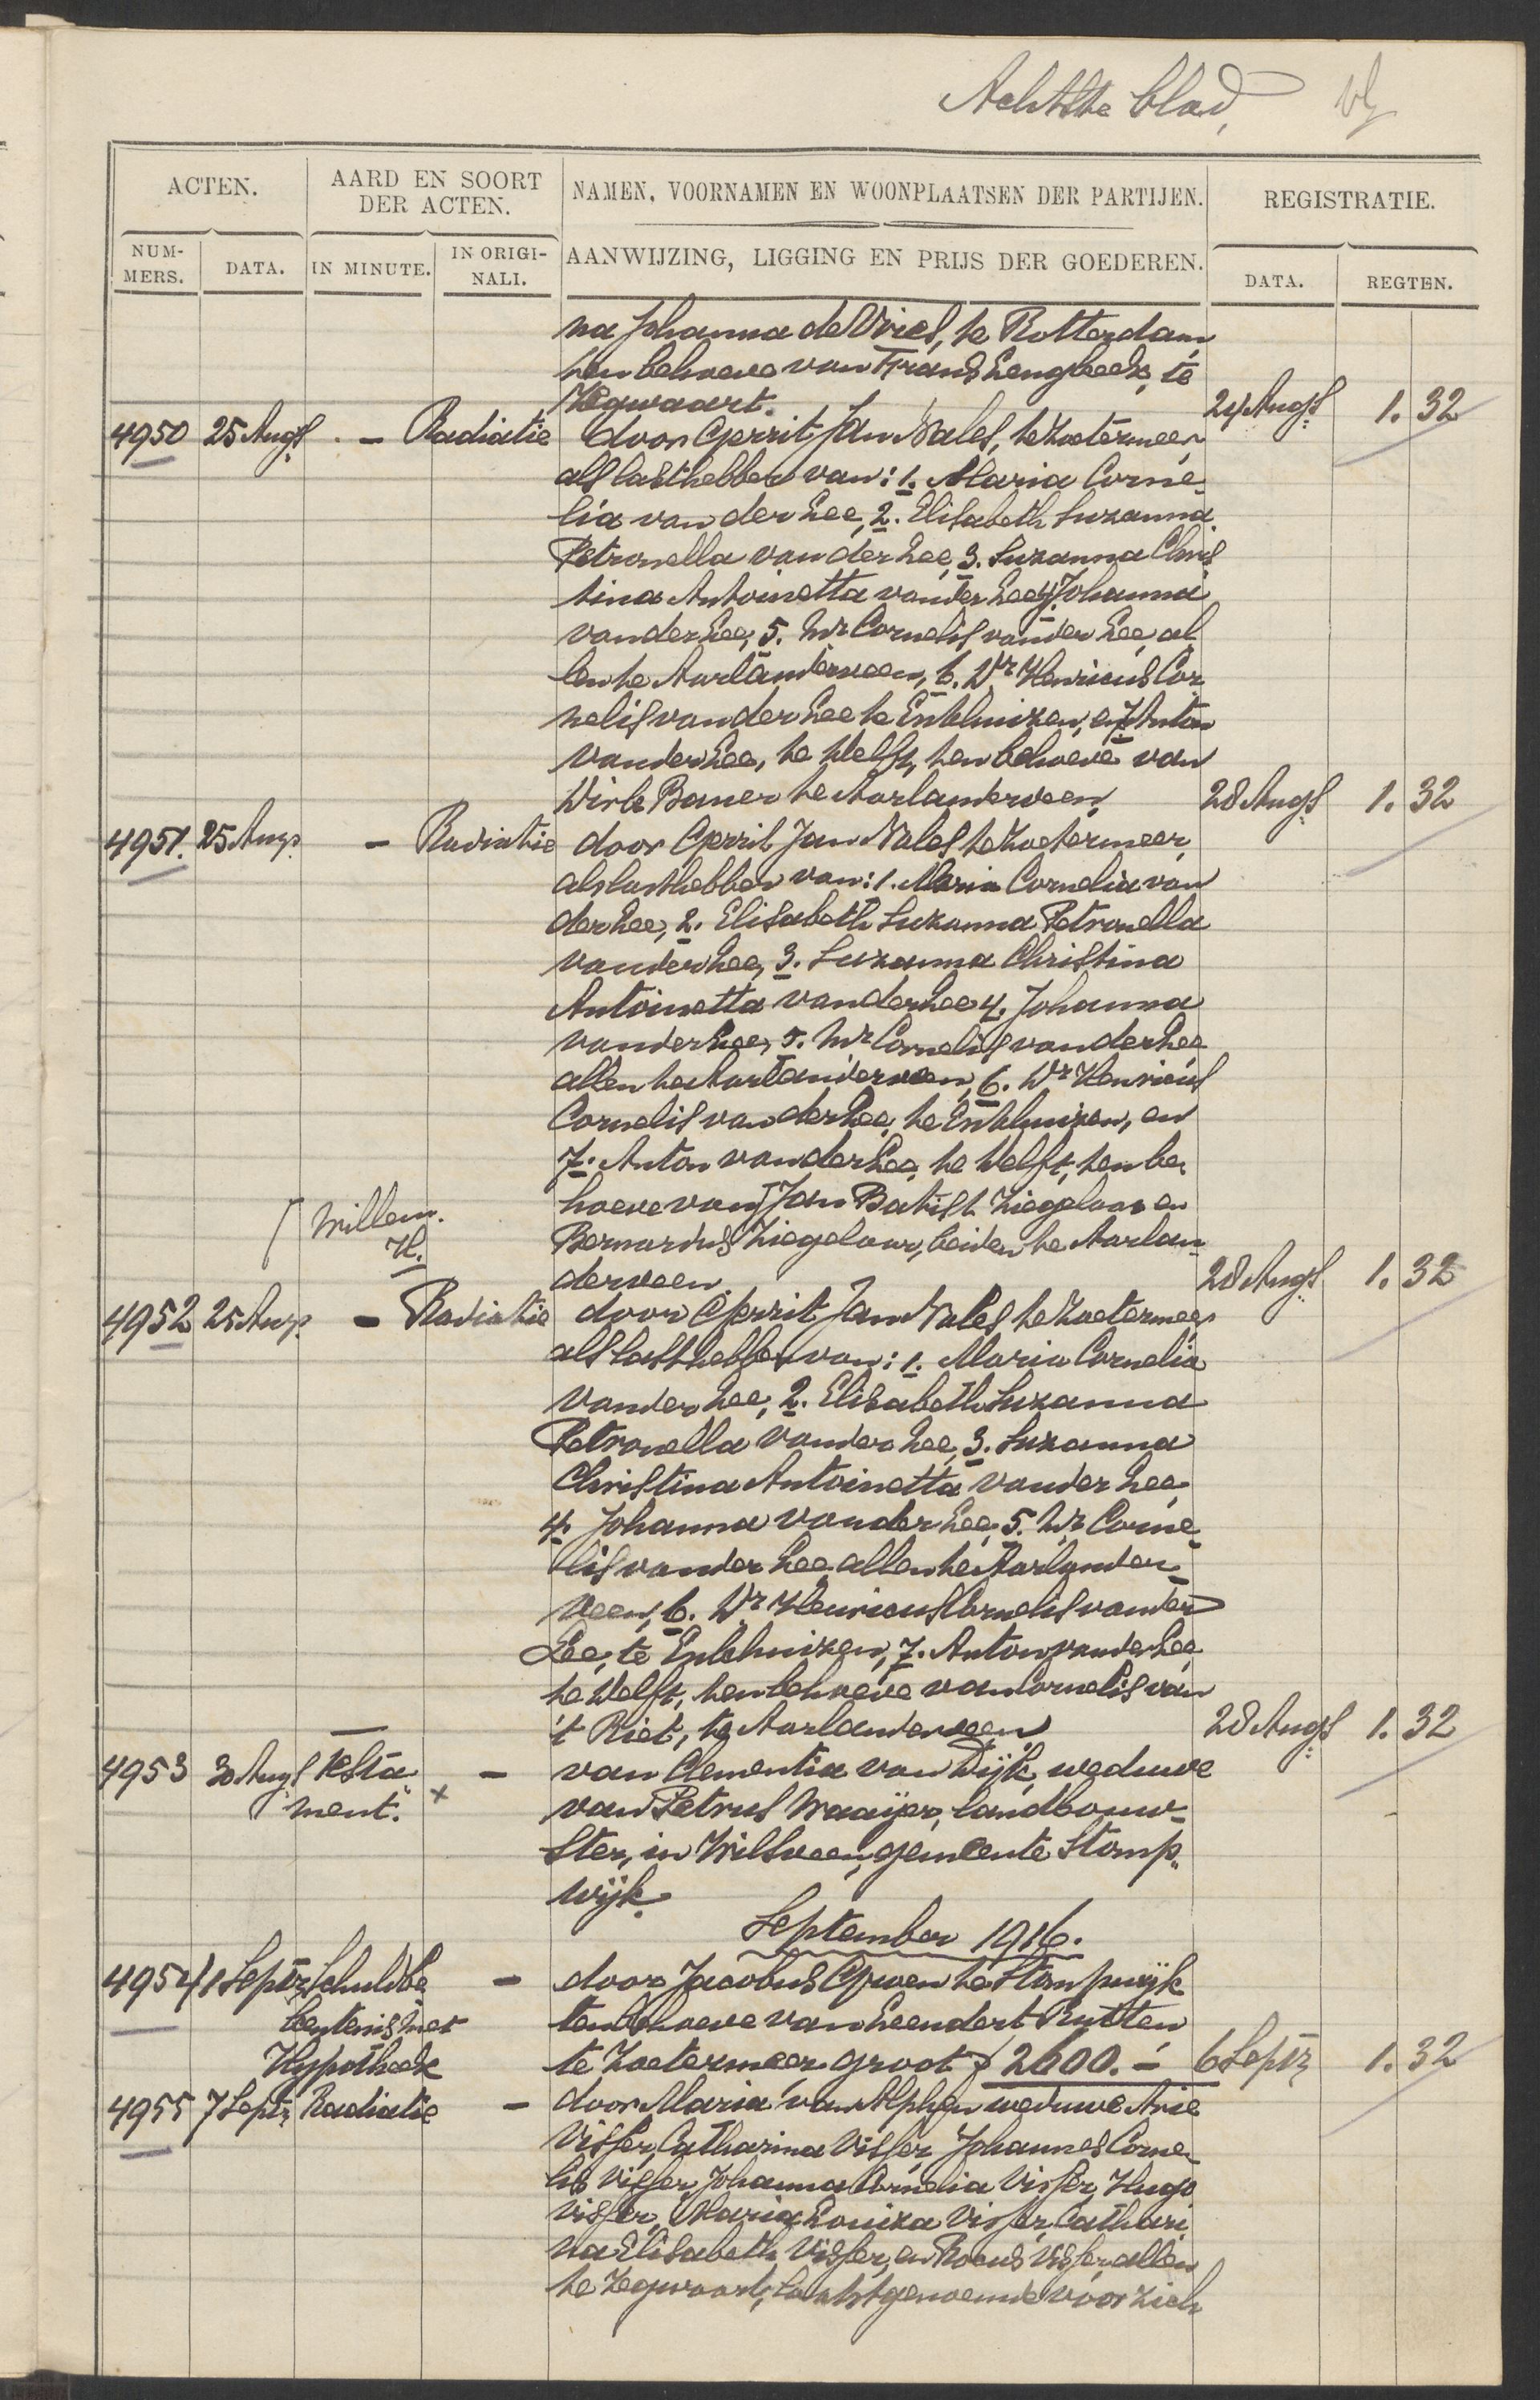 Achtste blad,
ACTEN.
AARD EN SOORT DER ACTEN.
NAMEN, VOORNAMEN EN WOONPLAATSEN DER PARTIJEN.
REGISTRATIE.
NUMMERS.
DATA.
IN MINUTE.
IN ORIGINALI.
AANWIJZING, LIGGING EN PRIJS DER GOEDEREN.
DATA.
REGTEN.
na Johanna de Vries, te Rotterdam
ten behoeve van Frans Langbeek, te
Zegwaart. 24 Augs 1. 32
4950 25 Augs. - Radiatie door Gerrit Jan Nales, te Zoetermeer,
als lasthebber van: 1. Maria Corne-
lia van der Lee, 2. Elisabeth Suzanna
Petronella van der Lee, 3. Suzanna Chris
tina Antoinetta van der Lee, 4. Johanna
van der Lee, 5. Mr Cornelis van der Lee, al
len te Aarlanderveen, 6. Dr Henricus Cor
nelis van der Lee te Enkhuizen, en 7. Anton
van der Lee, te Delft, ten behoeve van
Dirk Baner te Aarlanderveen. 28 Augs 1. 32
4951. 25 Augs - Radiatie door Gerrit Jan Nales te Zoetermeer,
als lasthebber van: 1. Maria Cornelia van
der Lee, 2. Elisabeth Suzanna Petronella
van der Lee, 3. Suzanna Christina
Antoinetta van der Lee 4. Johanna
van der Lee, 5. Mr Cornelis van der Lee
allen te Aarlanderveen, 6. Dr Henricus
Cornelis van der Lee, te Enkhuizen, en
7. Anton van der Lee, te Delft, ten be
hoeve van ⌈ Jan Batist Ziegelaar en
⌈ Willem.
H.
Bernardus Ziegelaar, beiden te Aarlan
derveen 28 Augs 1. 32
4952 25 Augs - Radiatie door Gerrit Jan Nales te Zoetermeer
als lasthebber van: 1. Maria Cornelia
van der Lee, 2. Elisabeth Suzanna
Petronella van der Lee, 3. Suzanna
Christina Antoinetta van der Lee
4. Johanna van der Lee, 5. Mr Corne-
lis van der Lee, allen te Aarlander-
veen, 6. Dr Henricus Cornelis van der
Lee, te Enkhuizen, 7. Anton van der Lee
te Delft, ten behoeve van Cornelis van
't Riet, te Aarlanderveen 28 Augs 1. 32
4953 30 Augs Testa- x - van Clementia van Dijk, weduwe
ment. van Petrus Waaijer, landbouw-
ster, in Wilsveen, gemeente Stomp-
wijk.
September 1916.
4954 1 Septr Schuldbe - door Jacobus Groen te Stompwijk
kentenis met ten behoeve van Leendert Rutten
Hypotheek te Zoetermeer groot f 2600.- 6 Septr 1. 32
4955 7 Septr Radiatie - door Maria van Alphen weduwe Arie
Visser, Catharina Visser, Johannes Corne-
lis Visser, Johanna Cornelia Visser, Hugo
Visser, Maria Louiza Visser, Cathari
na Elisabeth Visser, en Visser allen
te Zegwaart, laatstgenoemde voor zich